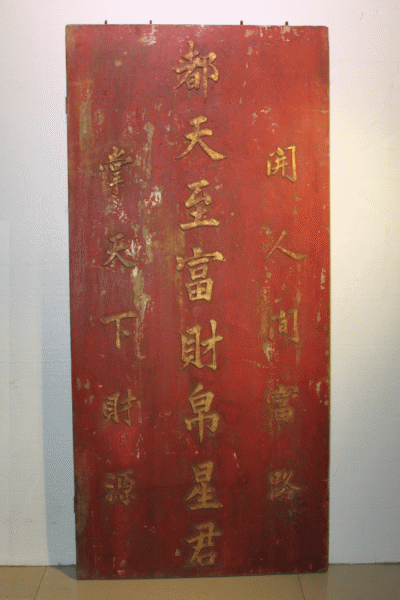 開人間富路
都天至富財帛星君
掌天下財源